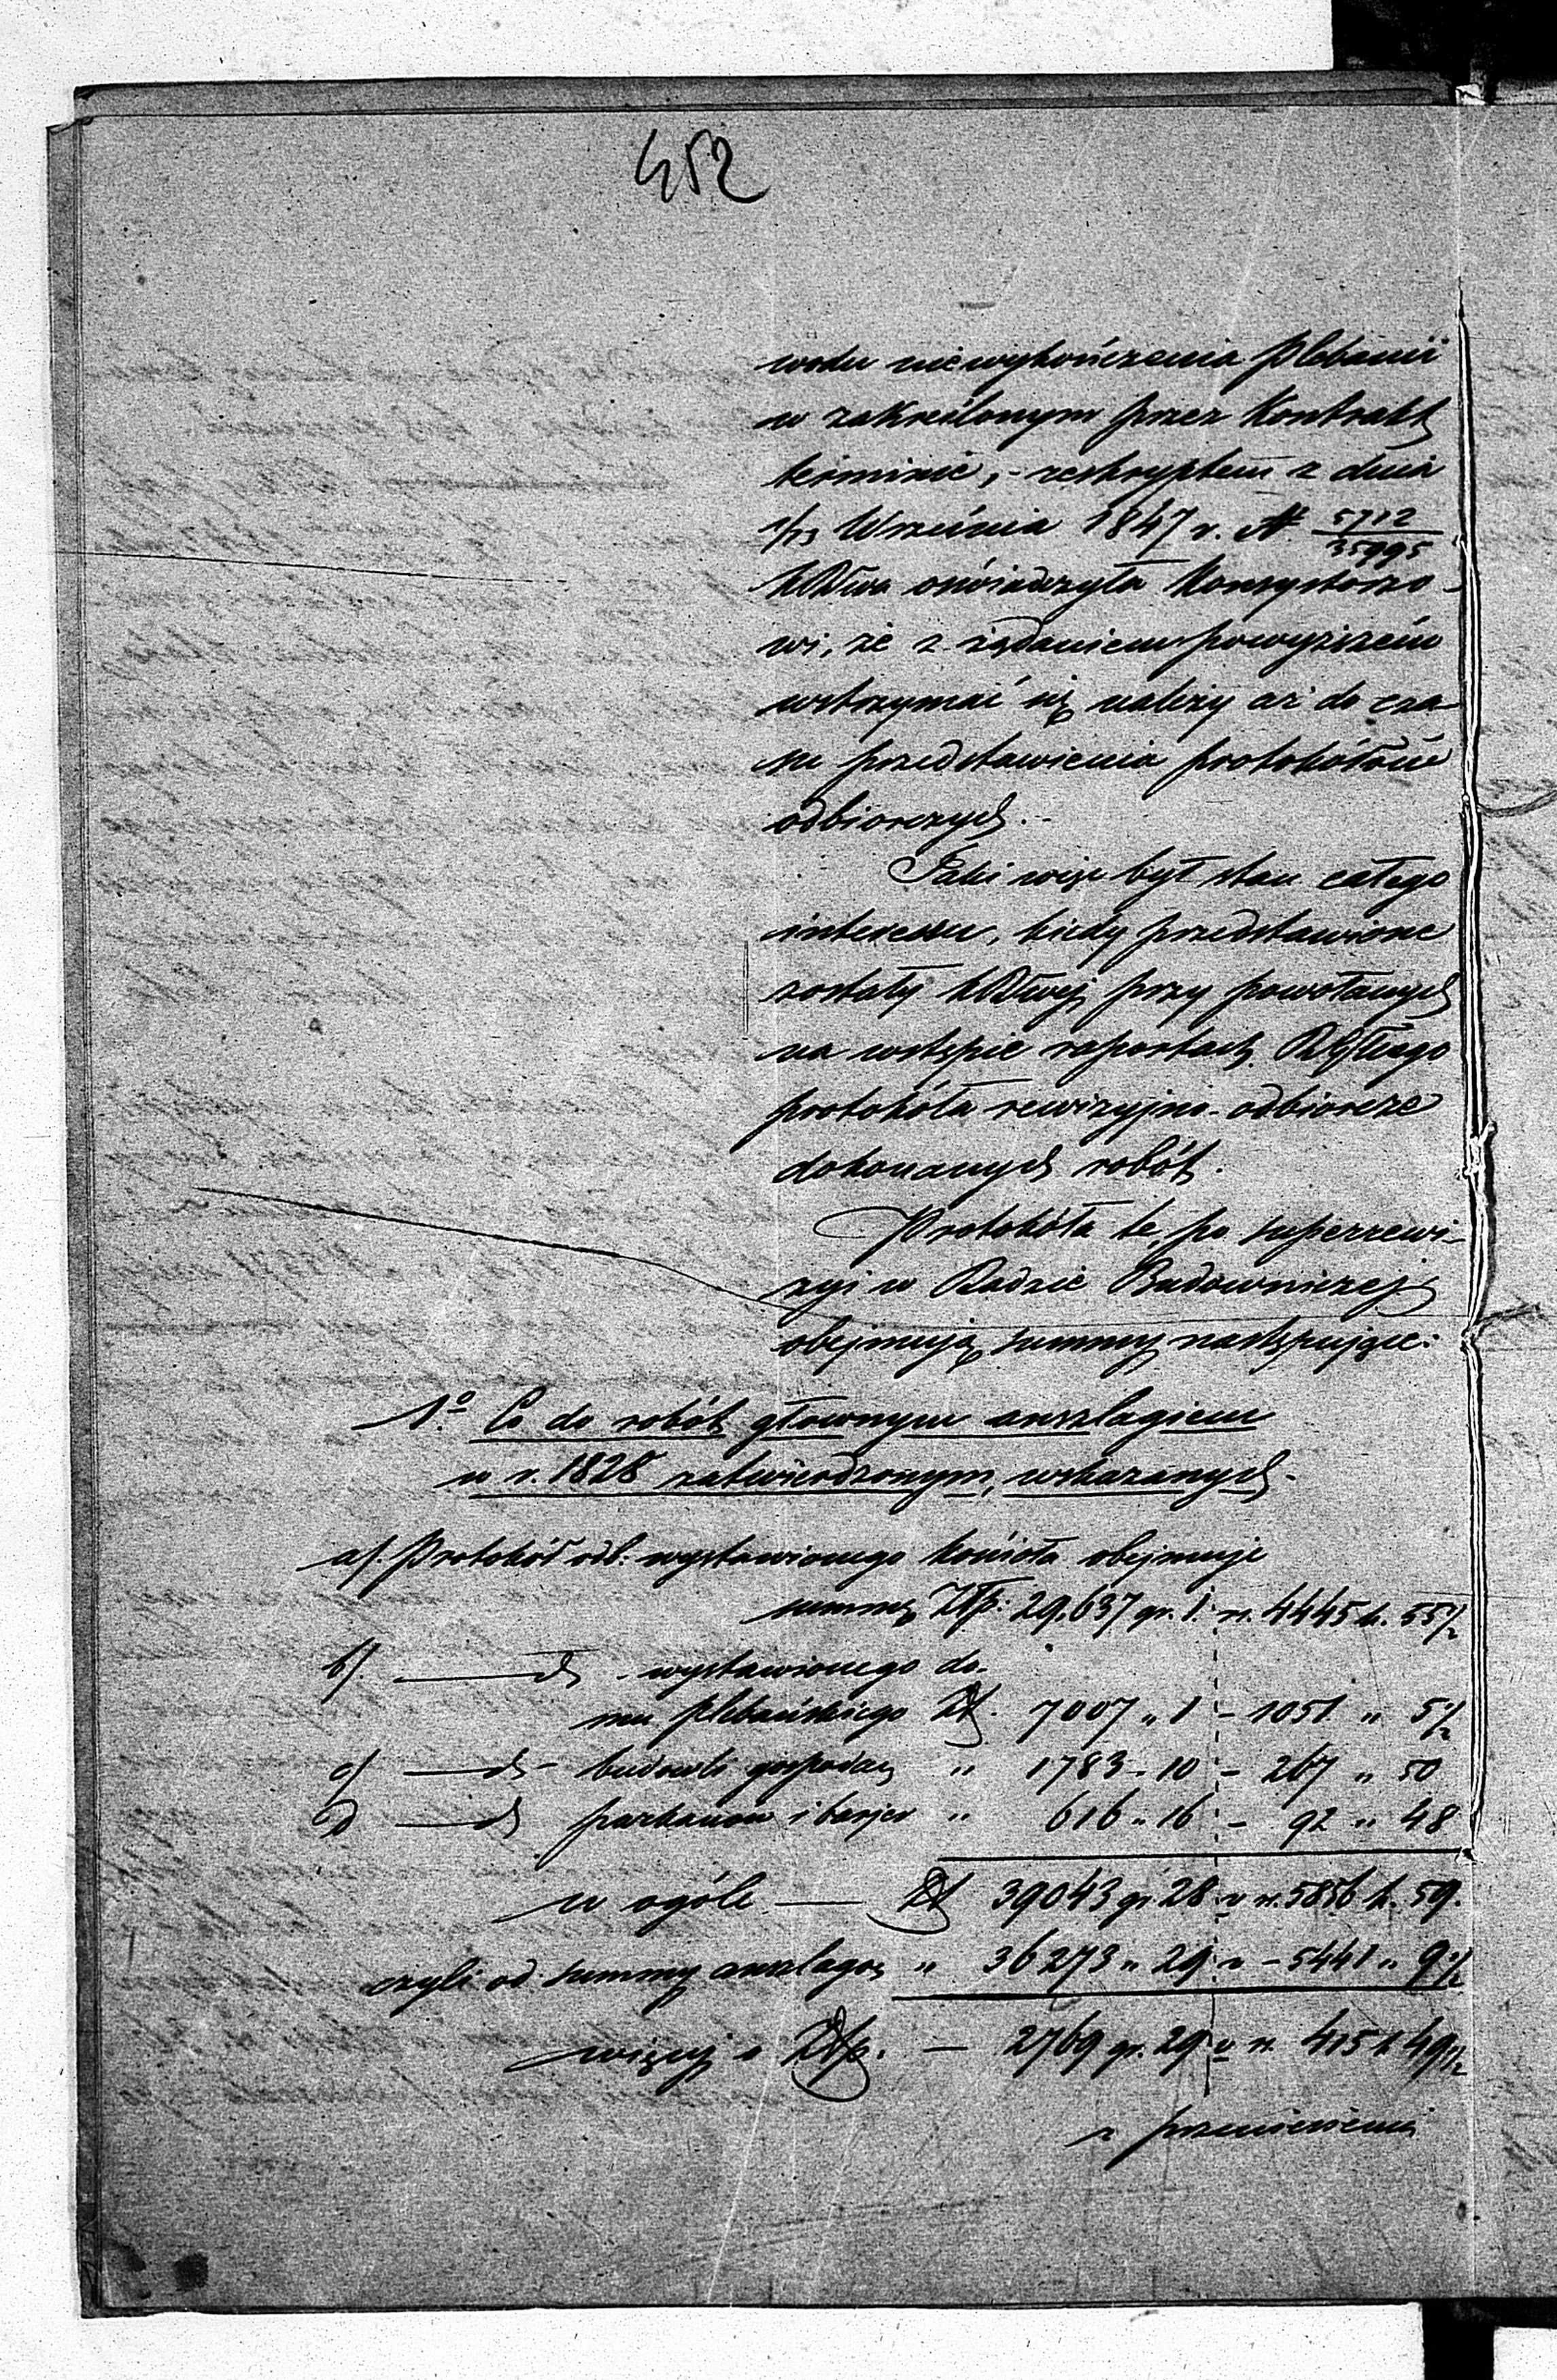 452
wodu niewykończenia plebanii
w zakreślonym przez Kontrakt
terminie, - reskryptem z dnia
1/13 Września 1847 r. N. 5712/35995
oświadczyła Konsystorzo-
wi, że z żądaniem powyższem
wstrzymać się należy aż do cza-
su przedstawienia protokółów
odbiorczych. -
Taki więc był stan całego
interessu, kiedy przedstawione
zostały przy powołanych
na wstępie raportach
protokóła rewizyjno-odbiorcze
dokonanych robót.
Protokóła te, po superrewi-
zyi w Radzie Budowniczej
obejmują summy następujące:
1.º Co do robót głownym anszlagiem
w r. 1828 zatwierdzonym, wskazanych -
a/. Protokół odb: wystawionego kościoła obejmuje
summę Złp: 29,637 gr. 1. r. 4445 k. 55 1/2
b/. ——— d - wystawionego do-
mu plebańskiego Zł. 7007 „ 1 - 1051 „ 5 1/2
c/ ——— d - budowli gospodar „ 1783 - 10 - 267 „ 50
d ——— d parkanów i „ 616 „ 16 - 92 „ 48
w ogóle —— Zł 39043 gr 28 v r. 5856 k. 59.
czyli od summy anszlagow „ 36273 „ 29 v - 5441 „ 9 1/2
więcej o Złp. — 2769 gr. 29 v r. 415 k 49 1/2
z